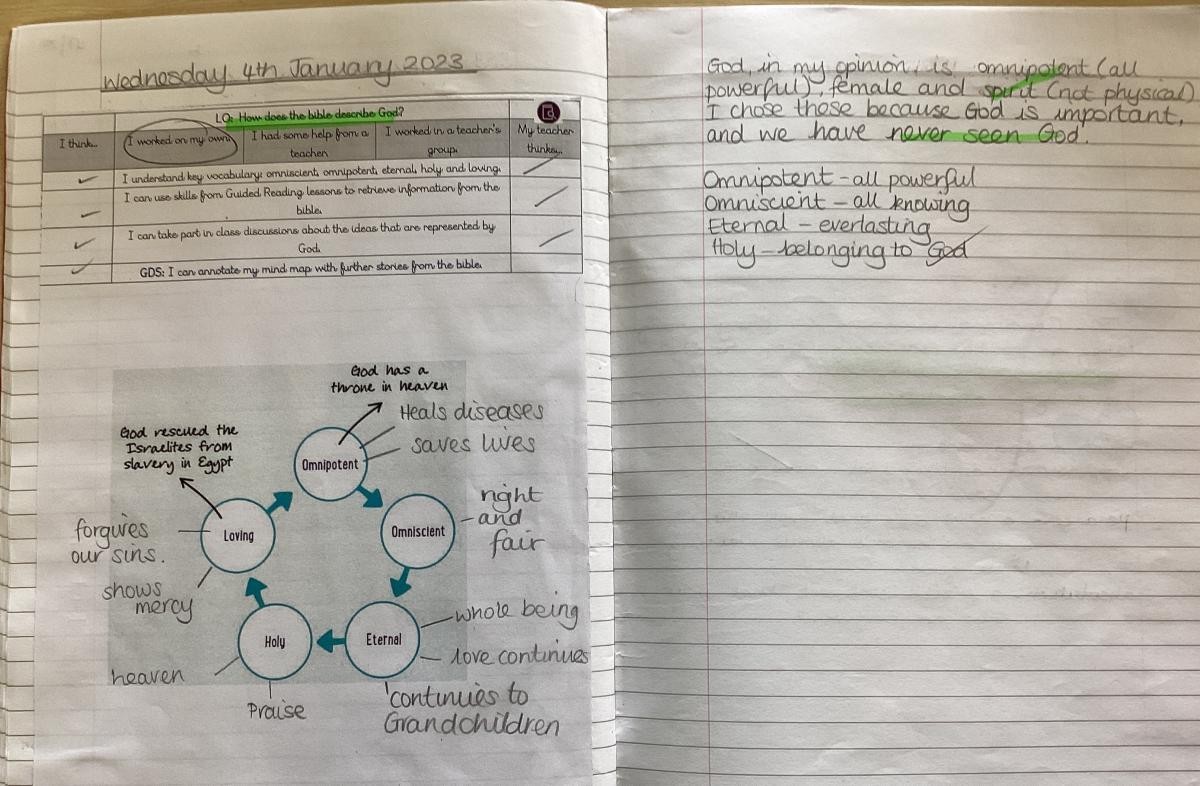 Wednesday 4th January 2023
LO: How does the bible describe God?
I think...
I worked on my own
I had some help from a
teacher.
I worked in a teacher's
group.
My teacher
thinks...
I understand key vocabulary: omniscient, omnipotent, eternal, holy and loving.
I can use skills from Guided Reading lessons to retrieve information from the
bible.
I can take part in class discussions about the ideas that are represented by
God.
GDS: I can annotate my mind map with further stories from the bible.
God has a
throne in heaven
Heals diseases
saves lives
God rescued the
Israelites from
slavery in Egypt
Omnipotent
right
and
fair
Omniscient
Loving
forgives
our sins.
shows
mercy
Holy
Eternal
whole being
love continues
heaven
Praise
continues to
Grandchildren
God, in my opinion, is omnipotent (all
powerful), female and spirit (not physical)
I chose those because God is important,
and we have never seen God.
Omnipotent - all powerful
Omniscient - all knowing
Eternal - everlasting
Holy - belonging to God